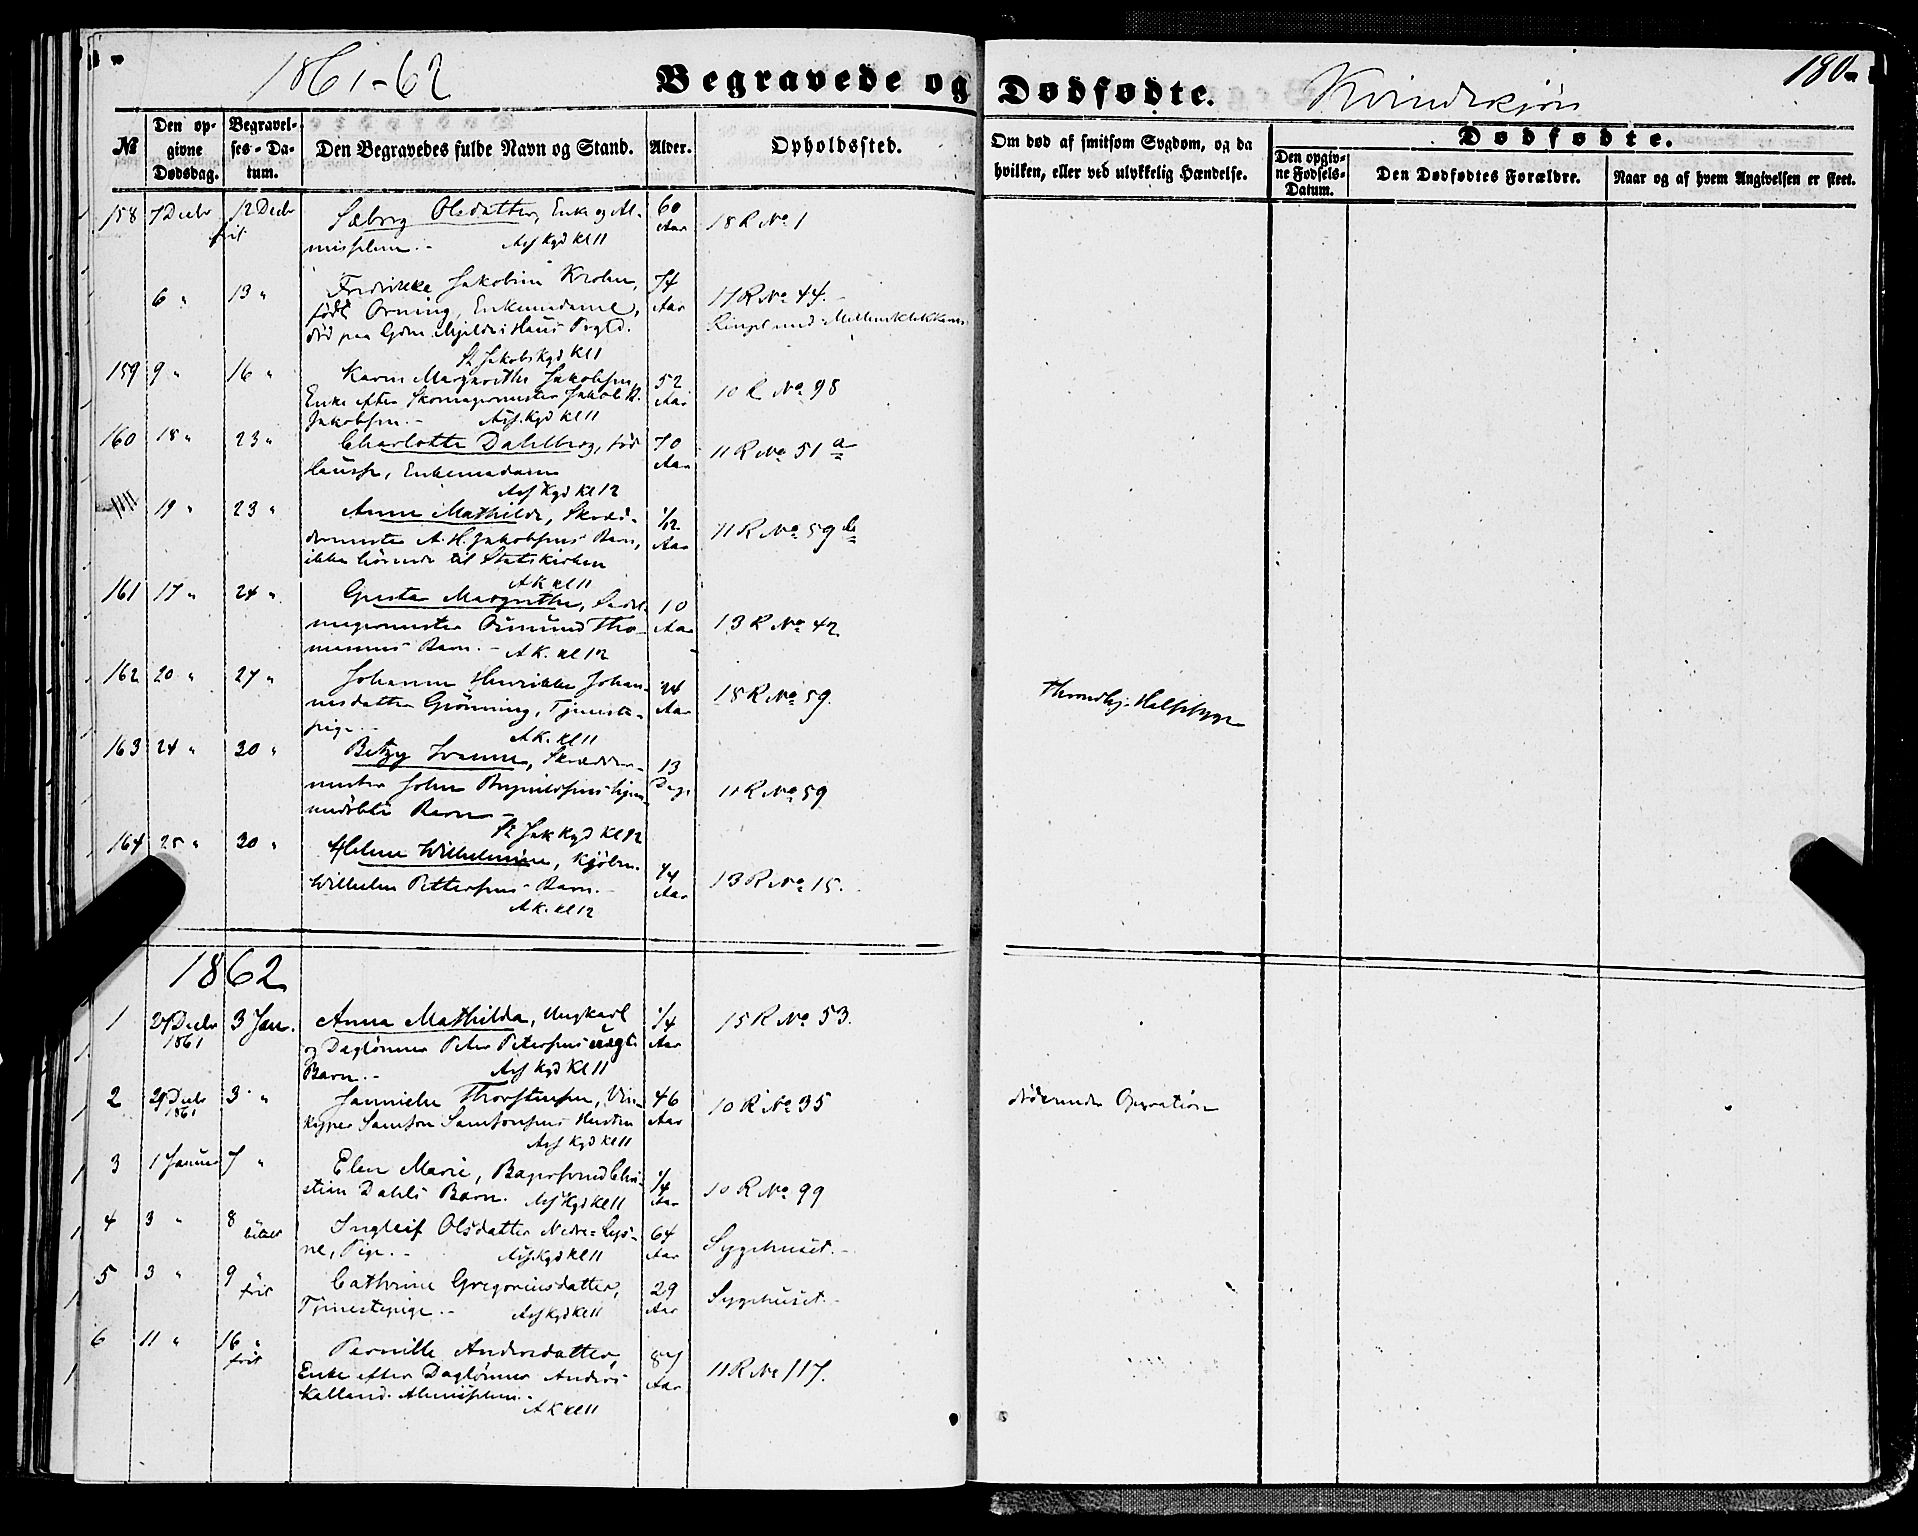 1861-62
Begravede og Dødfødte.
Kvindekjön
180
№
Den opgivne Dødsdag.
Begravelses-Datum.
Den Begravedes fulde Navn og Stand.
Alder.
Opholdssted.
Om død af smitsom Sygdom, og da hvilken, eller ved ulykkelig Hændelse.
Dødfødte.
Den opgivne Fødsels-Datum.
Den Dødfødtes Forældre.
Naar og af hvem Angivelsen er skeet.
158 7 Decbr 12 Decbr Olsdatter, Enke og Al- 60 Aar 18 R No 1
frit
Ass Kgd Kl 11
6 " 13 " Fredrikke Jakobine Krohn, 74 Aar 17 R No 44.
født Orning, Enkemadame,
død paa Gdn Mjelde i Haus Prgld.
St Jakobs Kgd Kl 11
159 9 " 16 " Karen Margrethe Jakobsen, 52 Aar 10 R No 98
Enke efter Skomagermester Jakob
Jakobsen.- Ass. Kgd Kl 11
160 18 " 23 " Charlotte Dahlberg, fød 70 Aar 11 R No 51 a
Enkemadame
Ass Kgd Kl 12
19 " 23 " Anne Mathilde, Skræd- 1/12 Aar 11 R No 59 b
dermester A. H. Jakobsens Barn,
ikke hörende til Statskirken
A K Kl 11
161 17 " 24 " Margrethe, Sadel- 10 Aar 13 R No 42
magermester Osmund Tho-
Barn.- A K. Kl 12
162 20 " 27 " Johanne Henrikke Johan- 24 Aar 18 R No 59.
nesdatter Grönning, Tjeneste-
pige.- A K. Kl 11
163 24 " 30 " Betzy Ivanne, Skrædder- 13 Dage 11 R No 59
mester John
Barn -
St Jak Kgd Kl 12
164 25 " 30 " Helene Wilhelmine, Kjöbm. 13 R No 15.
Wilhelm Pettersens Barn.-
A K. Kl 12
1862
1 27 Decbr 1861 3 Jan. Anna Mathilda, Ungkarl 1/4 Aar 15 R No 53.
og Daglönner Peter Petersens uægte
Barn.- Ass Kgd Kl 11
2 Decbr 1861 3 " Thorstensen, Vin- 46 Aar 10 R No 35 döde under Operation
kyper Samson Samsonsens Hustru
Ass Kgd Kl 11
3 1 Januar 7 " Elen Marie, Bagersvend Chri- 1/4 Aar 10 R No 99
stian Dahls Barn. Ass Kgd Kl 11
4 3 " 8 Ingleif Olsdatter Nedre- 64 Aar Sygehuset.-
ne, Pige.- Ass. Kgd Kl 11
5 3 " 9 " frit Cathrine Gregoriusdatter, 29 Aar Sygehuset.-
Tjenestepige.- Ass Kgd Kl 11
6 11 " 16 " frit Pernille Andersdatter, 87 Aar 11 R No 117.
Enke efter Daglönner Anders
Kalland. Almislem.-
A K Kl 11